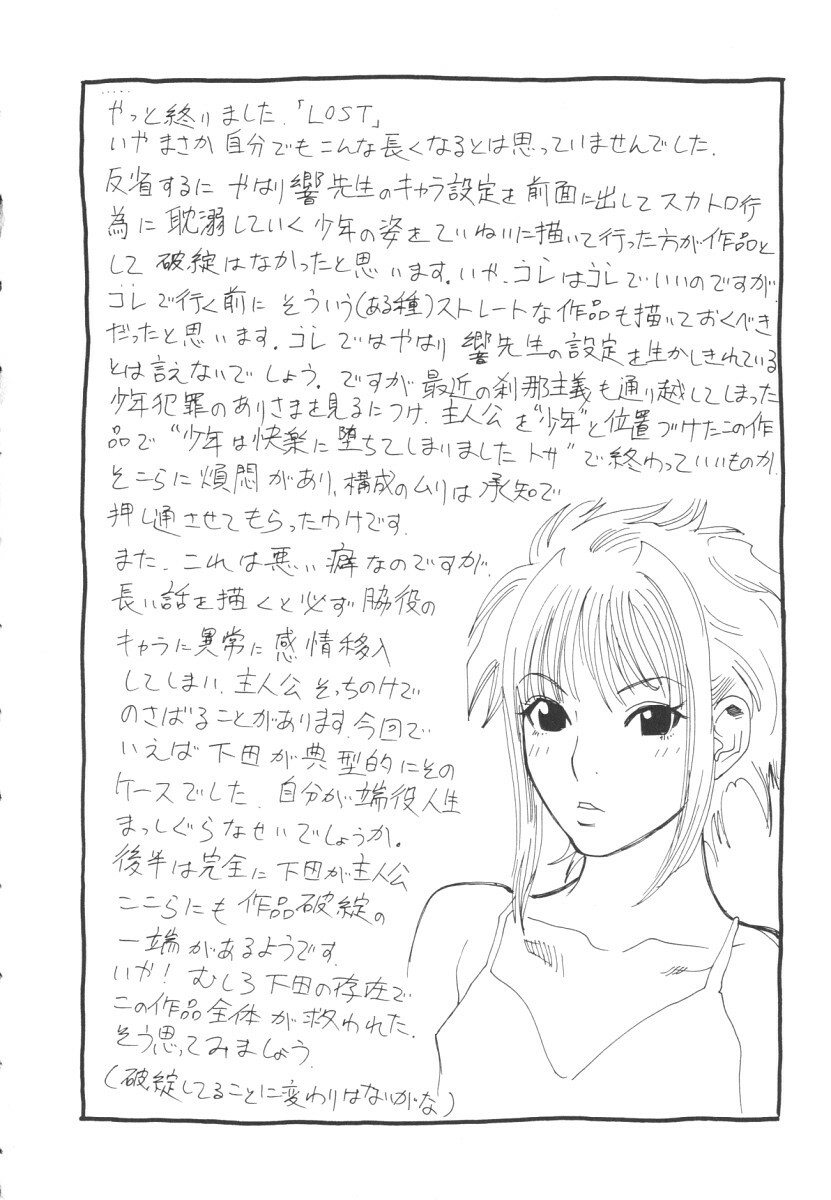 やっと終りました.「LOST」
いやまさか自分でもこんな長くなるとは思っていませんでした.
反省するに やはり響先生のキャラ設定を前面に出してスカトロ行
為に耽溺していく少年の姿をていねいに描いて行った方が作品と
して破綻はなかったと思います.いや、コレはコレでいいのですが
コレで行く前に そういう(ある種)ストレートな作品も描いておくべき
だったと思います.コレではやはり 響先生の設定を生かしきれている
とは言えないでしょう.ですが最近の刹那主義も通り越してしまった
少年犯罪のありさまを見るにつけ.主人公を“少年”と位置づけたこの作
品で“少年は快楽に堕ちてしまいました トサ”で終わっていいものか.
そこらに煩悶があり、構成のムリは承知で
押し通させてもらったわけです.
また、これは悪い癖なのですが.
長い話を描くと必ず脇役の
キャラに異常に感情移入
してしまい.主人公そっちのけで
のさばることがあります.今回で
いえば下田が典型的にその
ケースでした.自分が端役人生
まっしぐらなせいでしょうか。
後半は完全に下田が主人公
ここらにも作品破綻の
一端があるようです.
いや!むしろ下田の存在で
この作品全体が救われた.
そう思ってみましょう.
(破綻してることに変わりはないがな)